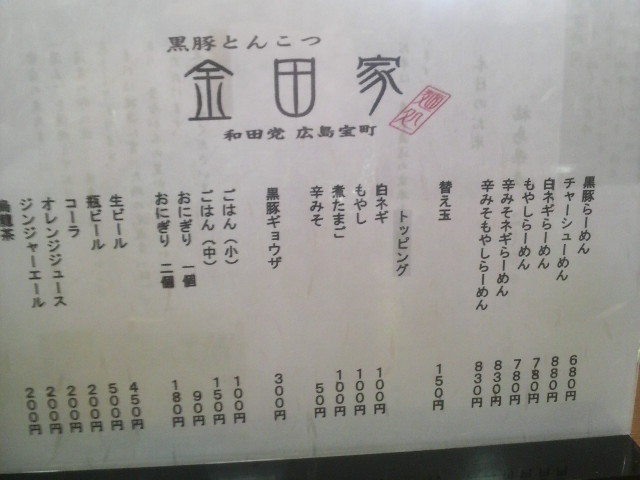 黒豚とんこつ
金田家
和田党 広島宝町
黒豚らーめん 680円
チャーシューめん 880円
白ネギらーめん 780円
もやしらーめん 780円
辛みそネギらーめん 830円
辛みそもやしらーめん 830円
替え玉 150円
トッピング
白ネギ 100円
もやし 100円
煮たまご 100円
辛みそ 50円
黒豚ギョウザ 300円
ごはん（小） 100円
ごはん（中） 150円
おにぎり 一個 90円
おにぎり 二個 180円
生ビール 450円
瓶ビール 500円
コーラ 200円
オレンジジュース 200円
ジンジャーエール 200円
烏龍茶 200円